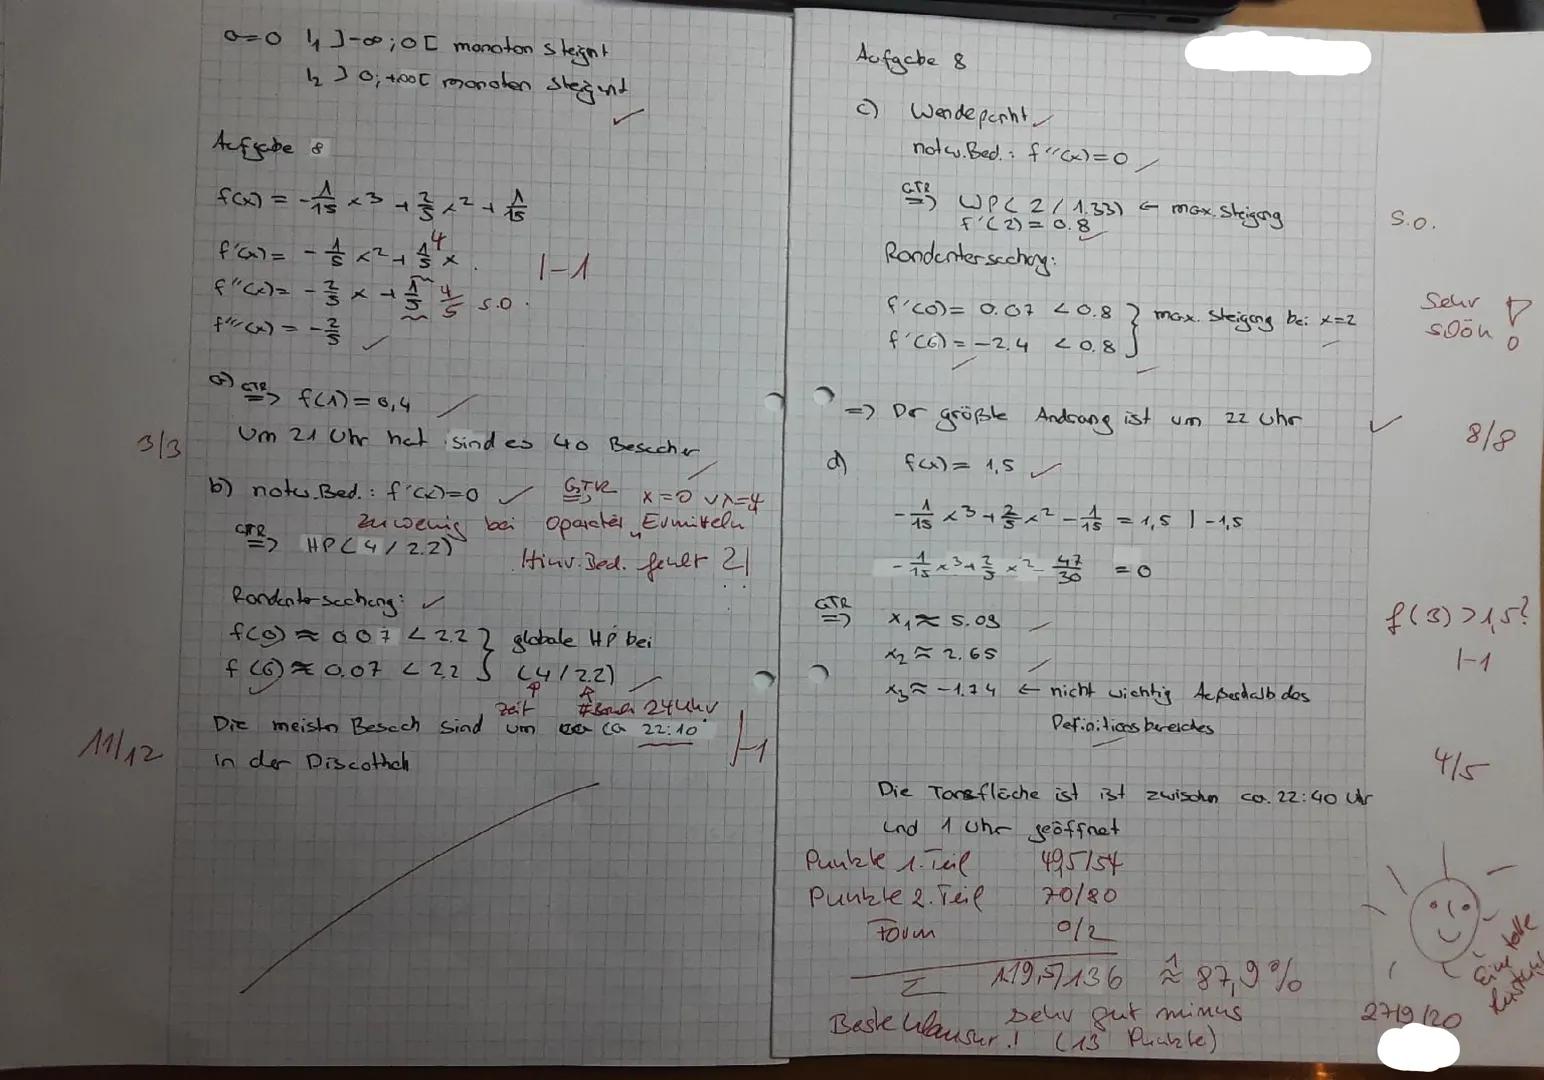 a=0 I₁ ]-∞;0[ monoton steigent
I₂ ]0;+∞[ monoton steigend
Aufgabe 8
f(x) = -1/15 x³ + 2/5 x² + 1/15
f'(x) = -1/5 x² + 4/5 x
|-1
f''(x) = -2/5 x + 1/5 4/5 s.o.
f'''(x) = -2/5
a) GTR => f(1) = 0,4
Um 21 Uhr hat sind es 40 Besucher
3/3
b) notw. Bed.: f'(x)=0 GTR => x=0 ∨ x=4
zu wenig bei Operator "Ermitteln"
GTR => HP(4/2.2)
Hinr. Bed. fehlt 2|
Randuntersuchung:
f(0) ≈ 0.07 < 2.2 } globale HP bei
f(6) ≈ 0.07 < 2.2 } (4/2.2)
Zeit 24 Uhr
Die meistn Besuch sind um ca 22:10
|-1
11/12
in der Discothek
Aufgabe 8
c) Wendepunkt
notw. Bed.: f''(x)=0
GTR => WP(2/1.33) ← max. Steigung
s.o.
f'(2) = 0.8
Randuntersuchung:
f'(0) = 0.07 < 0.8 } max. Steigung bei x=2
f'(6) = -2.4 < 0.8 }
Sehr schön!
=> Der größte Andrang ist um 22 Uhr
8/8
d) f(x) = 1,5
-1/15 x³ + 2/5 x² - 1/15 = 1,5 | -1,5
-1/15 x³ + 2/5 x² - 47/30 = 0
GTR => x₁ ≈ 5.09
f(3) > 1,5?
x₂ ≈ 2.65
|-1
x₃ ≈ -1.74 ← nicht wichtig Außerhalb des
Definitionsbereiches
4/5
Die Tanzfläche ist ist zwischn ca. 22:40 Uhr
und 1 Uhr geöffnet
Punkte 1. Teil 49,5/54
Punkte 2. Teil 70/80
Form 0/2
Σ 119,5/136 ≈ 87,9%
sehr gut minus
Beste Klausur! (13 Punkte)
Eine tolle Leistung
27/9/20